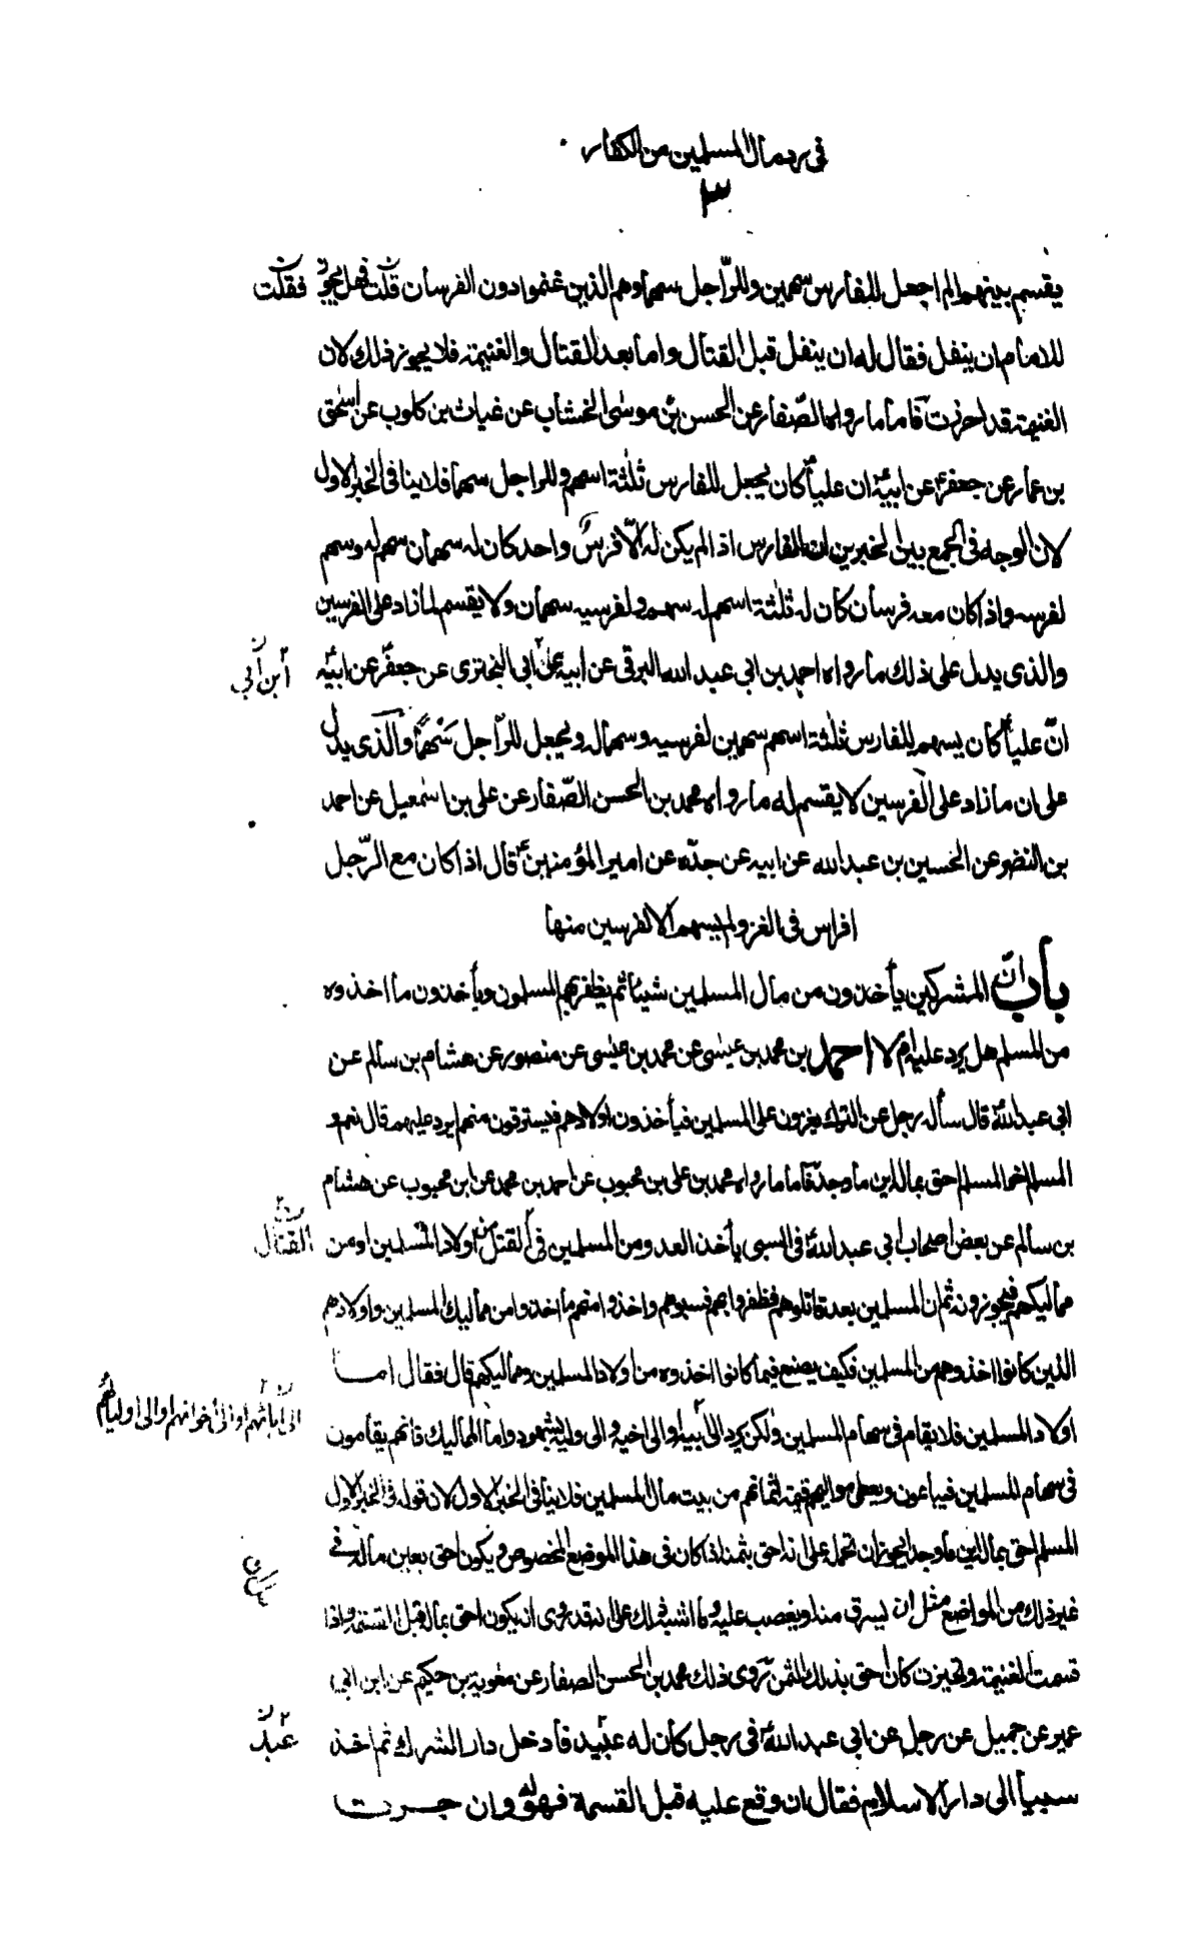 في رد مال المسلمين من الكفار
٣
يقسم بينهما لم اجعل للفارس سهمين وللرّاجل سهما وهم الذين غنموا دون الفرسان قلت فهل يجوز
فقلت
للامام ان ينفل فقال له ان ينفل قبل القتال واما بعد القتال والغنيمة فلا يجوز ذلك لان
الغنيمة قد احرزت فاما ما رواه الصّفار عن الحسن بن موسى الخشاب عن غياث بن كلوب عن اسحق
بن عمار عن جعفر عن ابيه ان علياً كان يجعل للفارس ثلثة اسهم وللراجل سهما فلا ينافي الخبر الاول
لان الوجه في الجمع بين الخبرين ان الفارس اذا لم يكن له الّا فرسٌ واحد كان له سهمان سهم له وسهم
لفرسه واذا كان معه فرسان كان له ثلثة اسهم له سهم ولفرسيه سهمان ولا يقسم لما زاد على الفرسين
والذى يدل على ذلك ما رواه احمد بن ابي عبد الله البرقي عن ابيه عن ابي البختري عن جعفر عن ابيه
ابن أبي
انّ علياً كان يسهم للفارس ثلثة اسهم سهمين لفرسيه وسهما له ويجعل للرّاجل سَهْماً والّذى يدل
على ان ما زاد على الفرسين لا يقسم له ما رواه محمد بن الحسن الصّفار عن على بن اسمعيل عن احمد
بن النضر عن الحسين بن عبد الله عن ابيه عن جدّه عن امير المؤمنين قال اذا كان مع الرّجل
افراس في الغزو لم يسهم الا لفرسين منها
باب انّ المشركين يأخذون من مال المسلمين شيئا ثم يظفر بهم المسلمون ويأخذون ما اخذوه
من المسلم هل يرد عليهم ام لا احمد بن محمد بن عيسى عن محمد بن عيسى عن منصور عن هشام بن سالم عن
ابي عبد الله قال سأله رجل عن الترك يغزون على المسلمين فيأخذون اولادهم فيسترقون منهم ايرد عليهم قال نعم و
المسلم اخو المسلم المسلم احق بماله اين ما وجده فاما ما رواه محمد بن على بن محبوب عن احمد بن محمد عن ابن محبوب عن هشام
بن سالم عن بعض اصحاب ابي عبد الله في السبى يأخذ العدو من المسلمين في القتل من اولاد المسلمين او من
القتال
مماليكهم فيحوزونه ثم ان المسلمين بعد قاتلوهم فظفروا بهم فسبوهم واخذوا منهم ما اخذوا من مماليك المسلمين واولادهم
الذين كانوا اخذوهم من المسلمين فكيف يصنع فيما كانوا اخذوه من اولاد المسلمين ومماليكهم قال فقال اما
اولاد المسلمين فلا يقام في سهام المسلمين ولكن يرد الى ابيه او الى اخيه والى وليه بشهود واما المماليك فانهم يقامون
الى آبائهم او الى اخوانهم او الى اوليائهم
في سهام المسلمين فيباعون ويعطى مواليهم قيمة اثمانهم من بيت مال المسلمين فلا ينافي الخبر الاول لان قوله في الخبر الاول
المسلم احق بماله اين ما وجده يجوز ان نحمله على انه احق بثمنه اذا كان في هذا الموضع المخصوص ويكون احق بعين ماله في
غير ذلك من المواضع مثل ان يسرق منه او يغصب عليه وما اشبه ذلك على انه قد روى انه يكون احق بماله قبل القسمة واذا
قسمت الغنيمة وتحيزت كان احق بذلك بالثمن روى ذلك محمد بن الحسن الصفار عن معوية بن حكيم عن ابن ابي
عمير عن جميل عن رجل عن ابي عبد الله في رجل كان له عبيد فأدخل دار الشرك ثم اخذ
عبد
سبيا الى دار الاسلام فقال ان وقع عليه قبل القسمة فهو له وان جرت